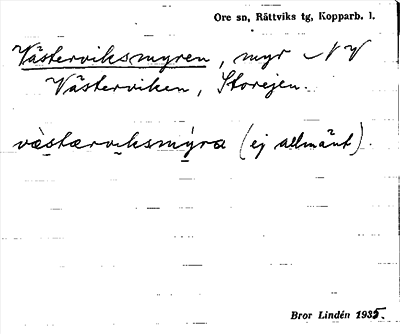 Ore sn, Rättviks tg, Kopparb. l.
Västerviksmyren, myr NV
Västerviken, Storejen.
væ̀stærviksmýra (ej allmänt).
Bror Lindén 1935.